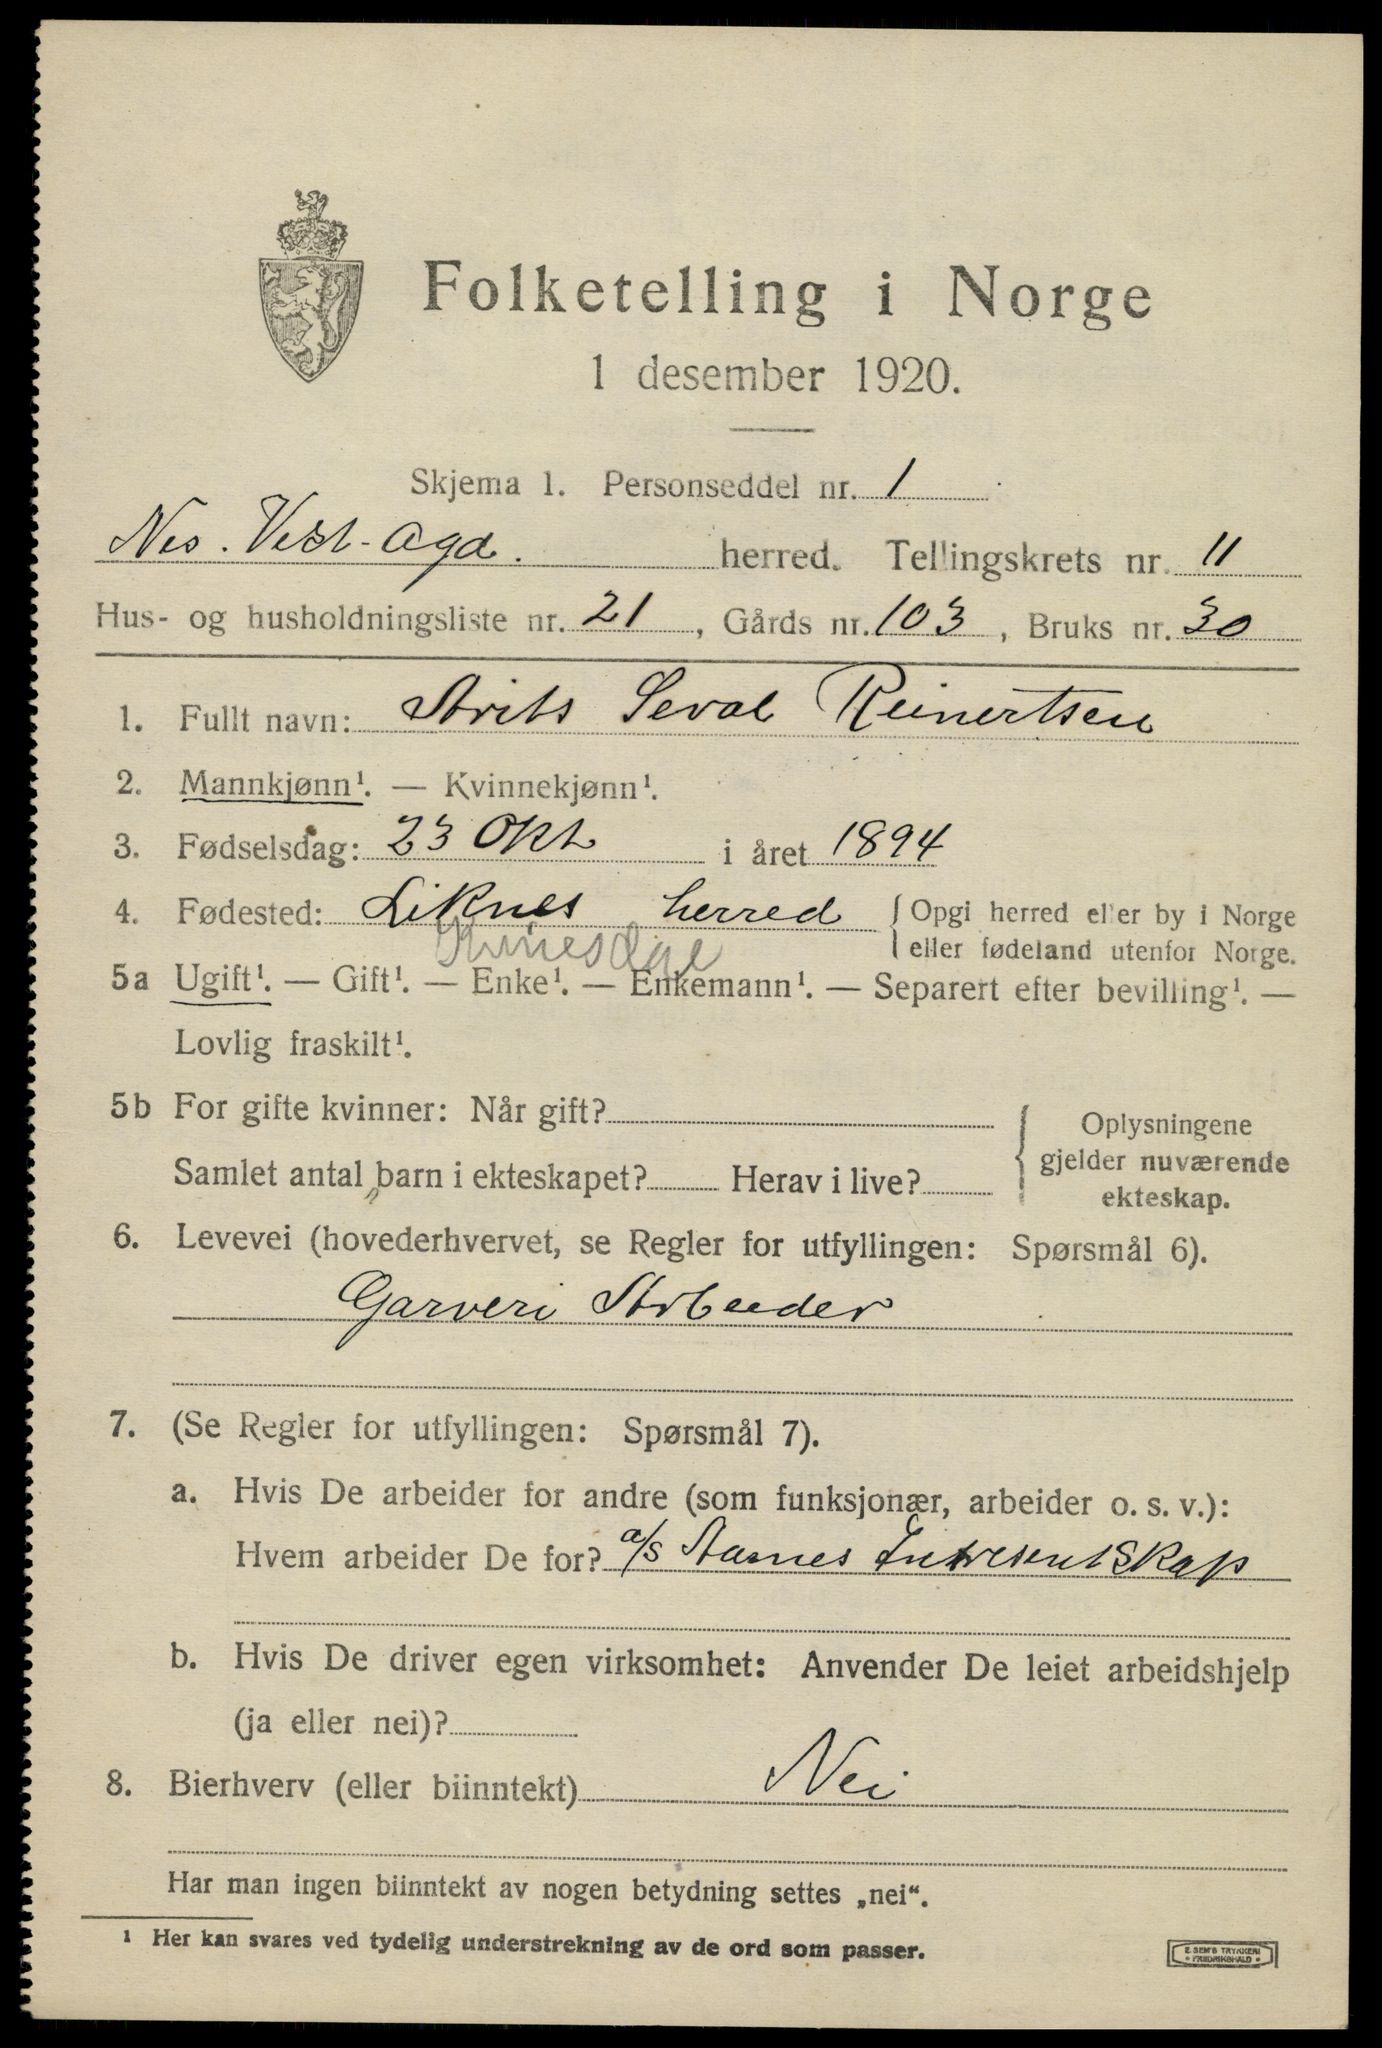 Folketelling i Norge
1 desember 1920.
Skjema 1. Personseddel nr. 1
Nes. Vest-Agd. herred. Tellingskrets nr. 11
Hus- og husholdningsliste nr. 21, Gårds nr. 103, Bruks nr. 30
1. Fullt navn: Arits Seval Reinertsen
2. Mannkjønn¹. — Kvinnekjønn¹.
3. Fødselsdag: 23 Okt i året 1894
4. Fødested: Liknes herred { Opgi herred eller by i Norge
eller fødeland utenfor Norge.
Kvinesdal
5a Ugift¹. — Gift¹. — Enke¹. — Enkemann¹. — Separert efter bevilling¹. —
Lovlig fraskilt¹.
5b For gifte kvinner: Når gift?
Samlet antal barn i ekteskapet? Herav i live?
Oplysningene
gjelder nuværende
ekteskap.
6. Levevei (hovederhvervet, se Regler for utfyllingen: Spørsmål 6).
Garveri Arbeider
7. (Se Regler for utfyllingen: Spørsmål 7).
a. Hvis De arbeider for andre (som funksjonær, arbeider o. s. v.):
Hvem arbeider De for? a/s Aames Intresentskap
b. Hvis De driver egen virksomhet: Anvender De leiet arbeidshjelp
(ja eller nei)?
8. Bierhverv (eller biinntekt) Nei
Har man ingen biinntekt av nogen betydning settes „nei“.
¹ Her kan svares ved tydelig understrekning av de ord som passer.
E. SEM'S TRYKKERI
FREDRIKSHALD